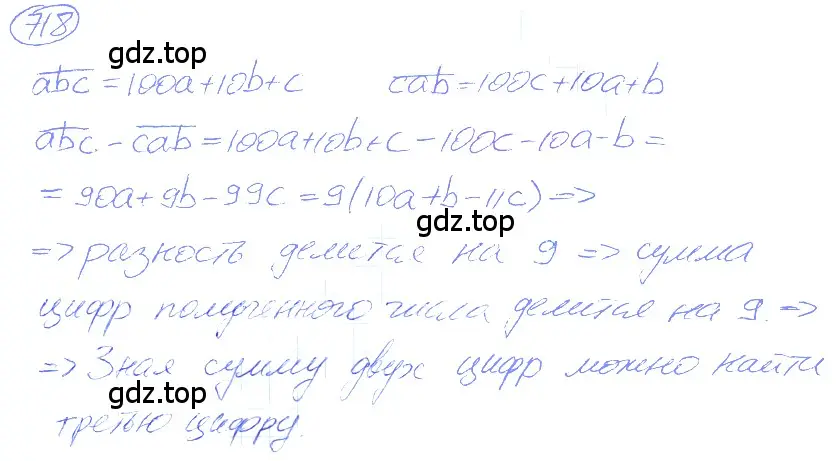 718
gdz.top
abc = 100a+10b+c cab = 100c+10a+b
abc - cab = 100a+10b+c-100c-10a-b =
= 90a+9b-99c = 9(10a+b-11c) =>
gdz.top
=> разность делится на 9 => сумма
цифр полученного числа делится на 9. =>
=> Зная сумму двух цифр можно найти
gdz.top
третью цифру.